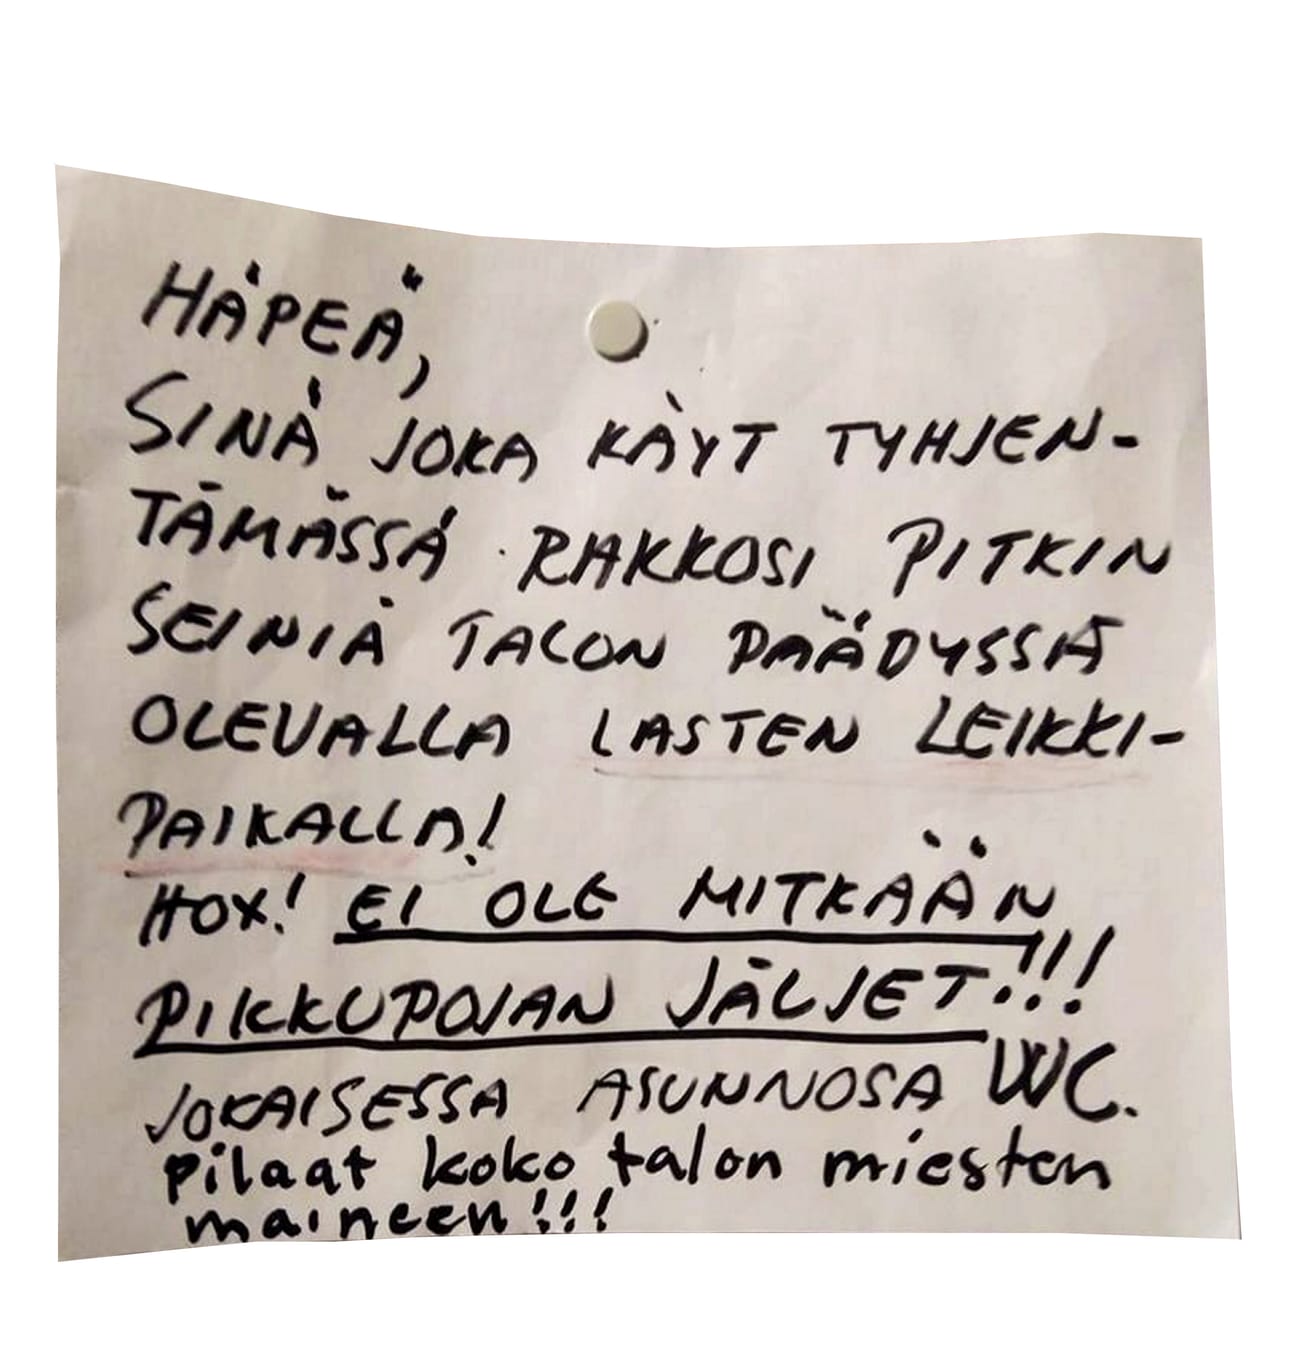 HÄPEÄ,
SINÄ JOKA KÄYT TYHJEN-
TÄMÄSSÄ RAKKOSI PITKIN
SEINIÄ TALON PÄÄDYSSÄ
OLEVALLA LASTEN LEIKKI-
PAIKALLA!
HOX! EI OLE MITKÄÄN
PIKKUPOJAN JÄLJET!!!
JOKAISESSA ASUNNOSA WC.
pilaat koko talon miesten
maineen!!!